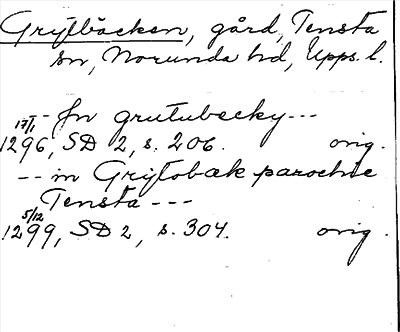 Grytbäcken, gård, Tensta
sn, Norunda hd, Upps. l.
-- Jn grutubecky---
17/1
1296, SD 2, s. 206. orig.
-- in Grytobæk parochie
Tensta ---
5/12
1299, SD 2, s. 304. orig.